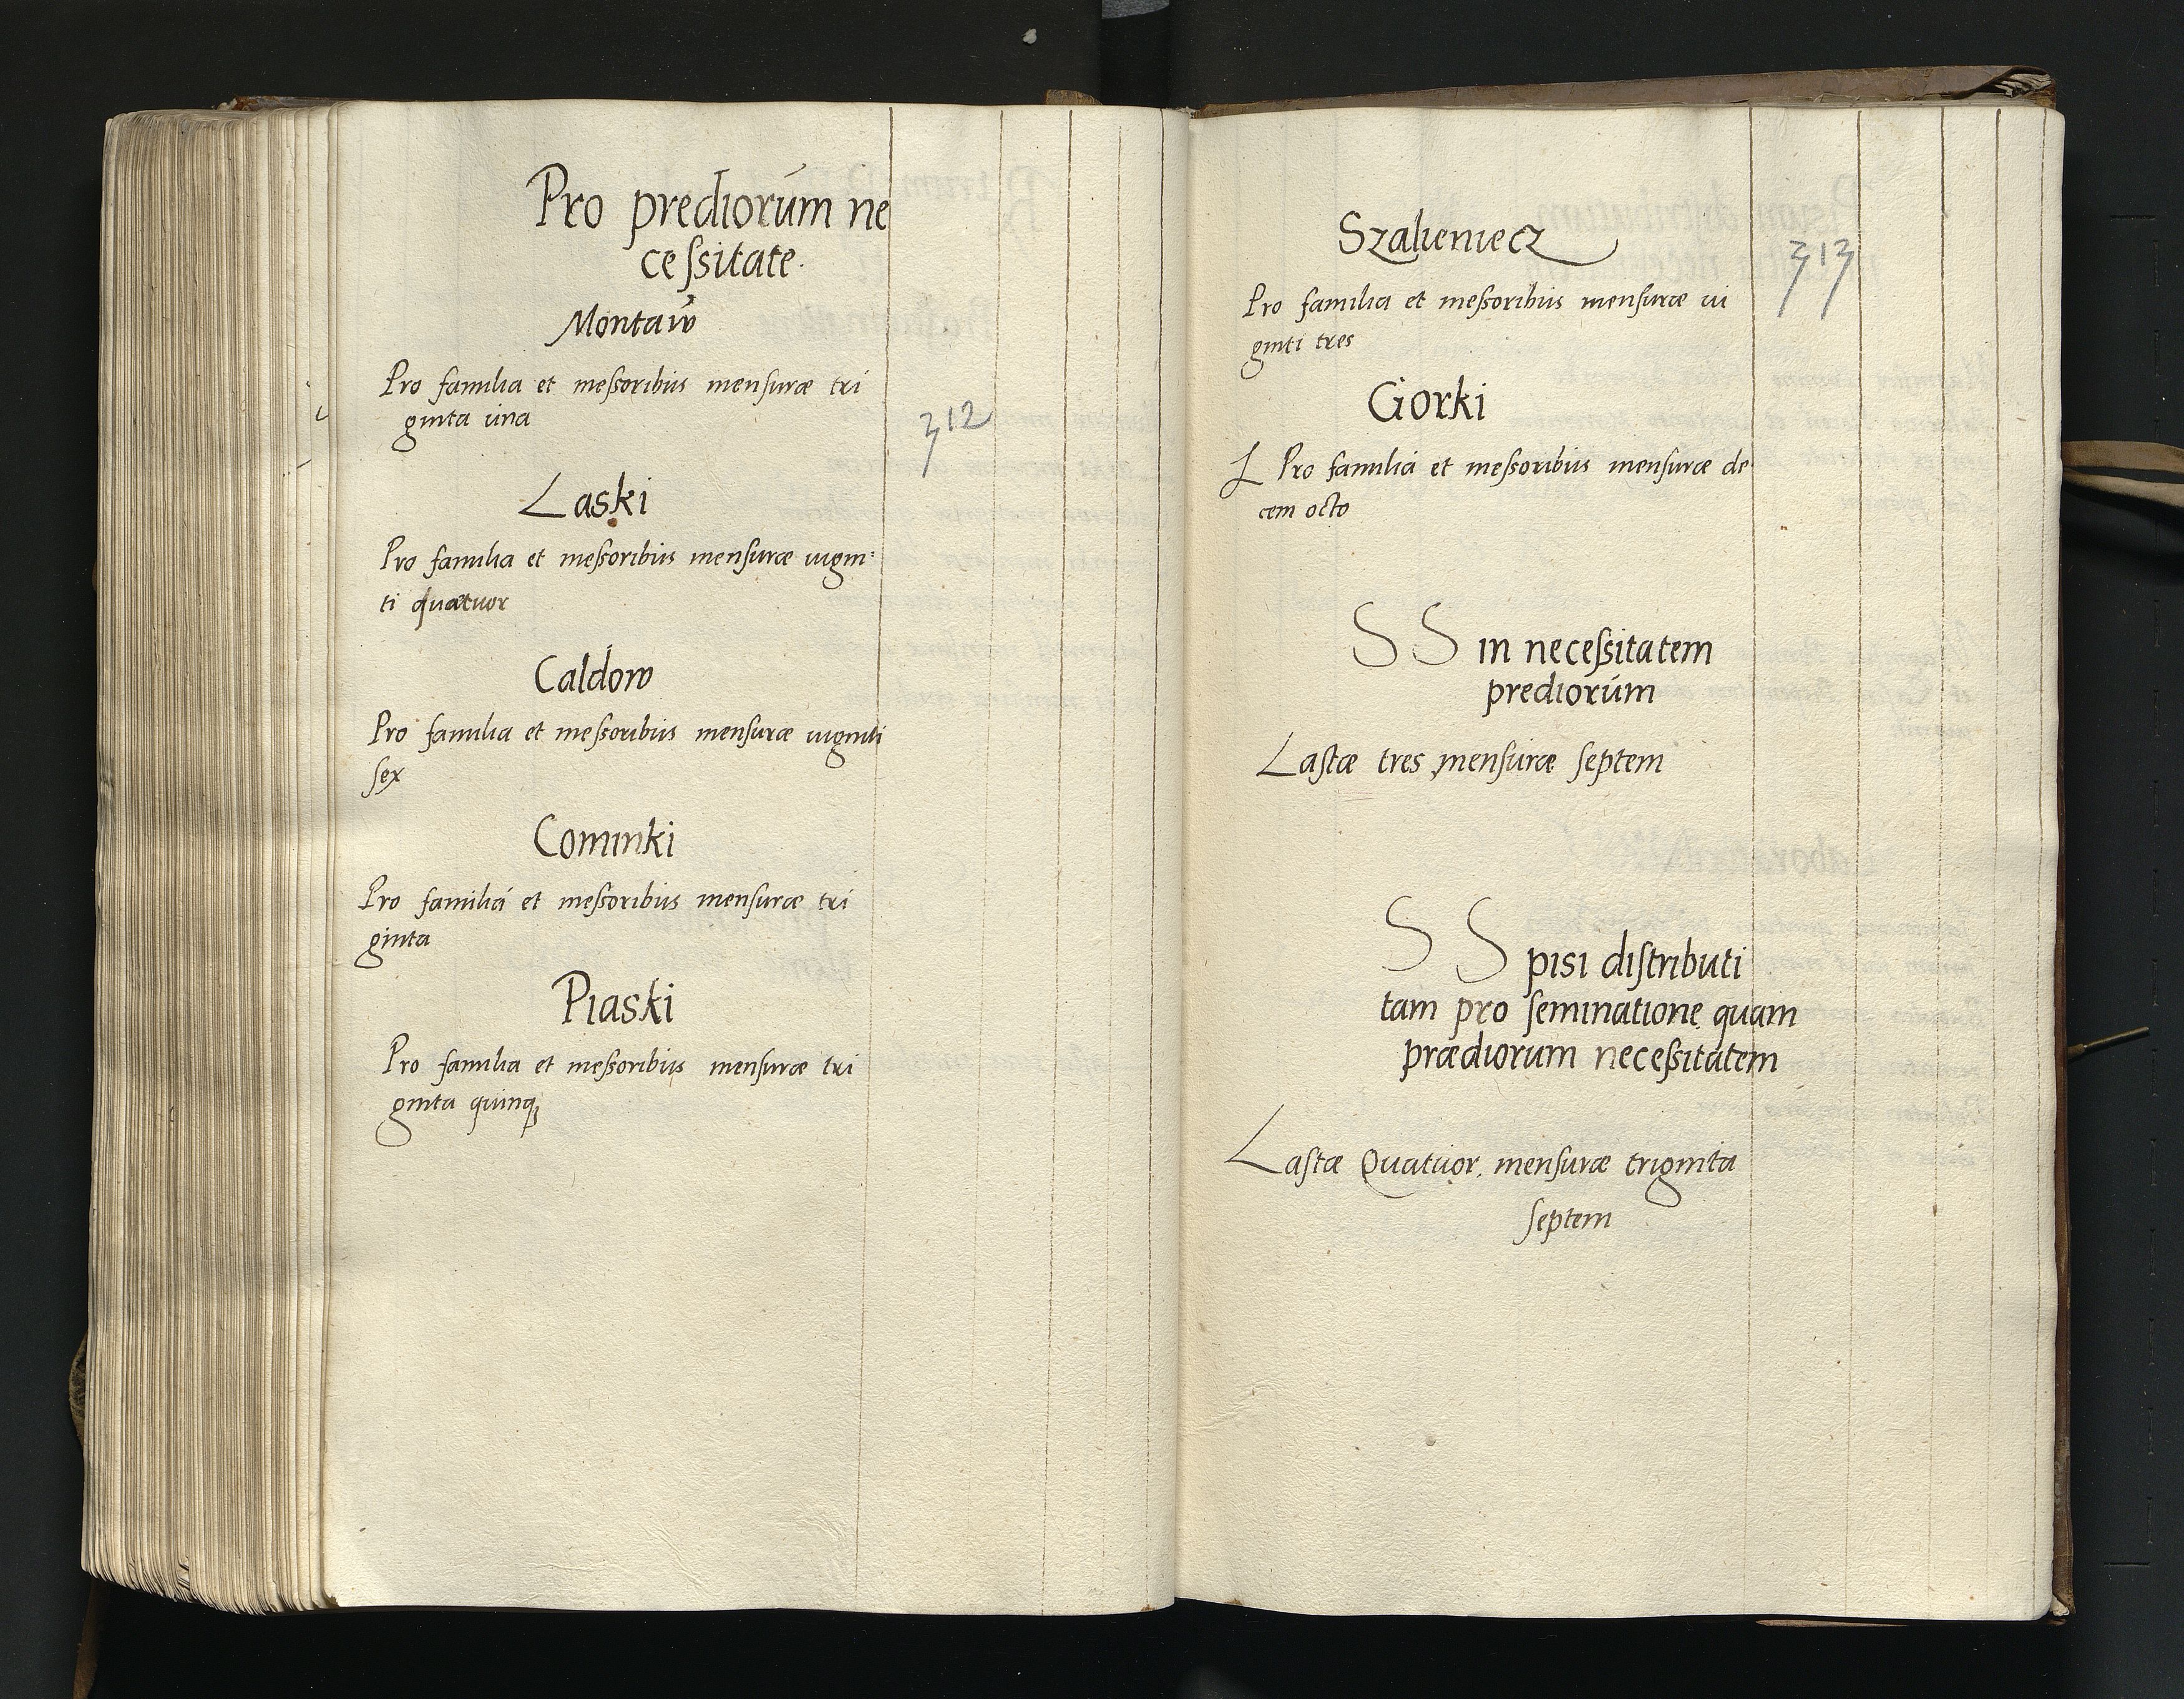 Pro prediorúm ne
ceſsitate.
Montaẃ
Pro familia et meſsoribus menſuræ tri
ginta una
312
Laski
Pro familia et meſsoribus menſuræ uigin:
ti quatuor
Caldow
Pro familia et meſsoribus menſuræ uiginti
ſex
Cominki
Pro familia et meſsoribus menſuræ tri
ginta
Piaski
Pro familia et meſsoribus menſuræ tri
ginta quinqꝫ
Szalieniecz
313
Pro familia et meſsoribus menſuræ ui
ginti tres
Gorki
Pro familia et meſsoribus menſuræ de
cem octo
SS in neceſsitatem
prediorúm
Laſtæ tres menſuræ ſeptem
SS pisi diſtributi
tam pro ſeminatione quam
prædiorum neceſsitatem
Laſtæ Quatuor, menſuræ triginta
ſeptem